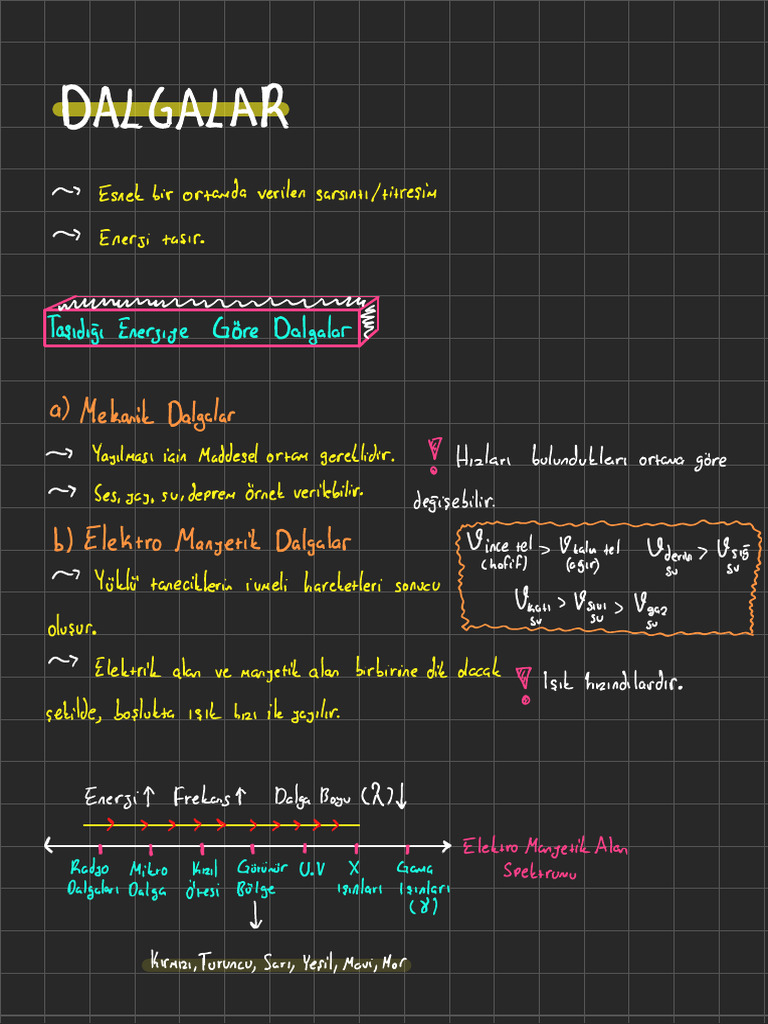 DALGALAR
Esnek bir ortamda verilen sarsıntı/titreşim
Enerji taşır.
Taşıdığı Enerjiye Göre Dalgalar
a) Mekanik Dalgalar
Yayılması için Maddesel ortam gereklidir.
Ses, yay, su, deprem örnek verilebilir.
! Hızları bulundukları ortama göre
değişebilir.
b) Elektro Manyetik Dalgalar
Yüklü taneciklerin ivmeli hareketleri sonucu
oluşur.
Elektrik alan ve manyetik alan birbirine dik olacak
şekilde, boşlukta ışık hızı ile yayılır.
V ince tel (hafif) > V kalın tel (ağır) V derin su > V sığ su
V katı su > V sıvı su > V gaz su
! Işık hızındılardır.
Enerji↑ Frekans↑ Dalga Boyu (λ)↓
Radyo Dalgaları
Mikro Dalga
Kızıl Ötesi
Görünür Bölge
U.V
X ışınları
Gama Işınları (γ)
Elektro Manyetik Alan
Spektrumu
Kırmızı, Turuncu, Sarı, Yeşil, Mavi, Mor